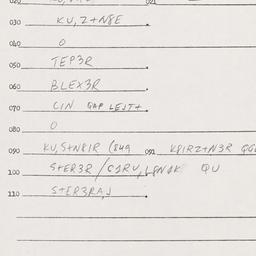 030 KU,Z+N8E
040 O
050 TEP3R
060 BLEX3R
070 CIN GAP LEJT+
080 O
090 KU,S+N8IR (8U9 091 K8IRZ+N3R
100 S+ER3R / C3RU,L8N8K QU
110 S+ER3RA,J